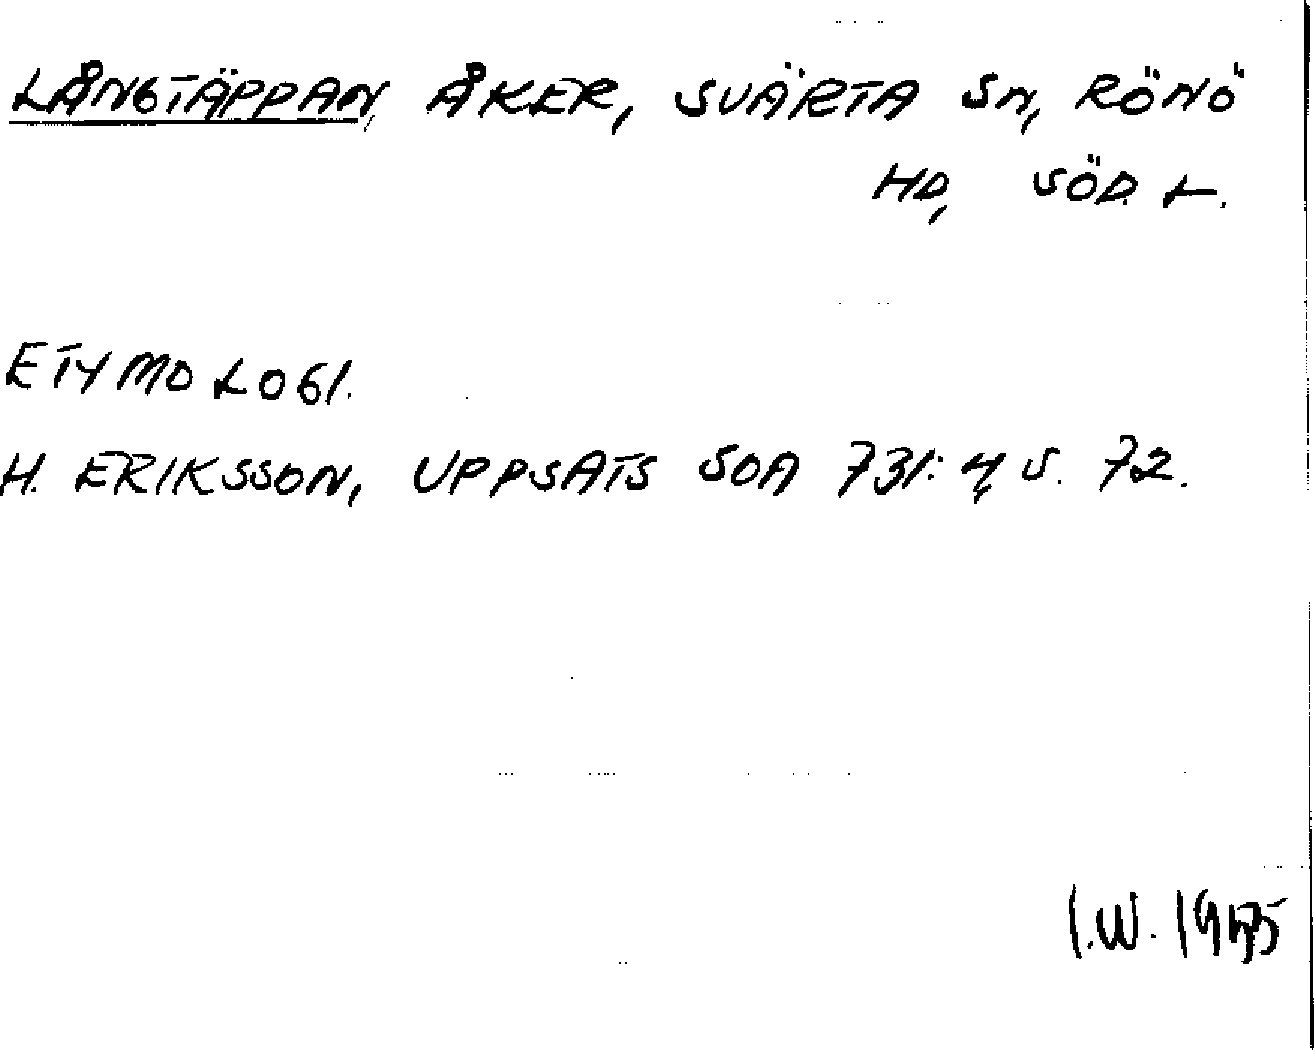 LÅNGTÄPPAN, ÅKER, SVÄRTA SN, RÖNÖ
HD, SÖD. L.
ETYMOLOGI.
H. ERIKSSON, UPPSATS SOA 731:4, S. 72.
I.W. 1955